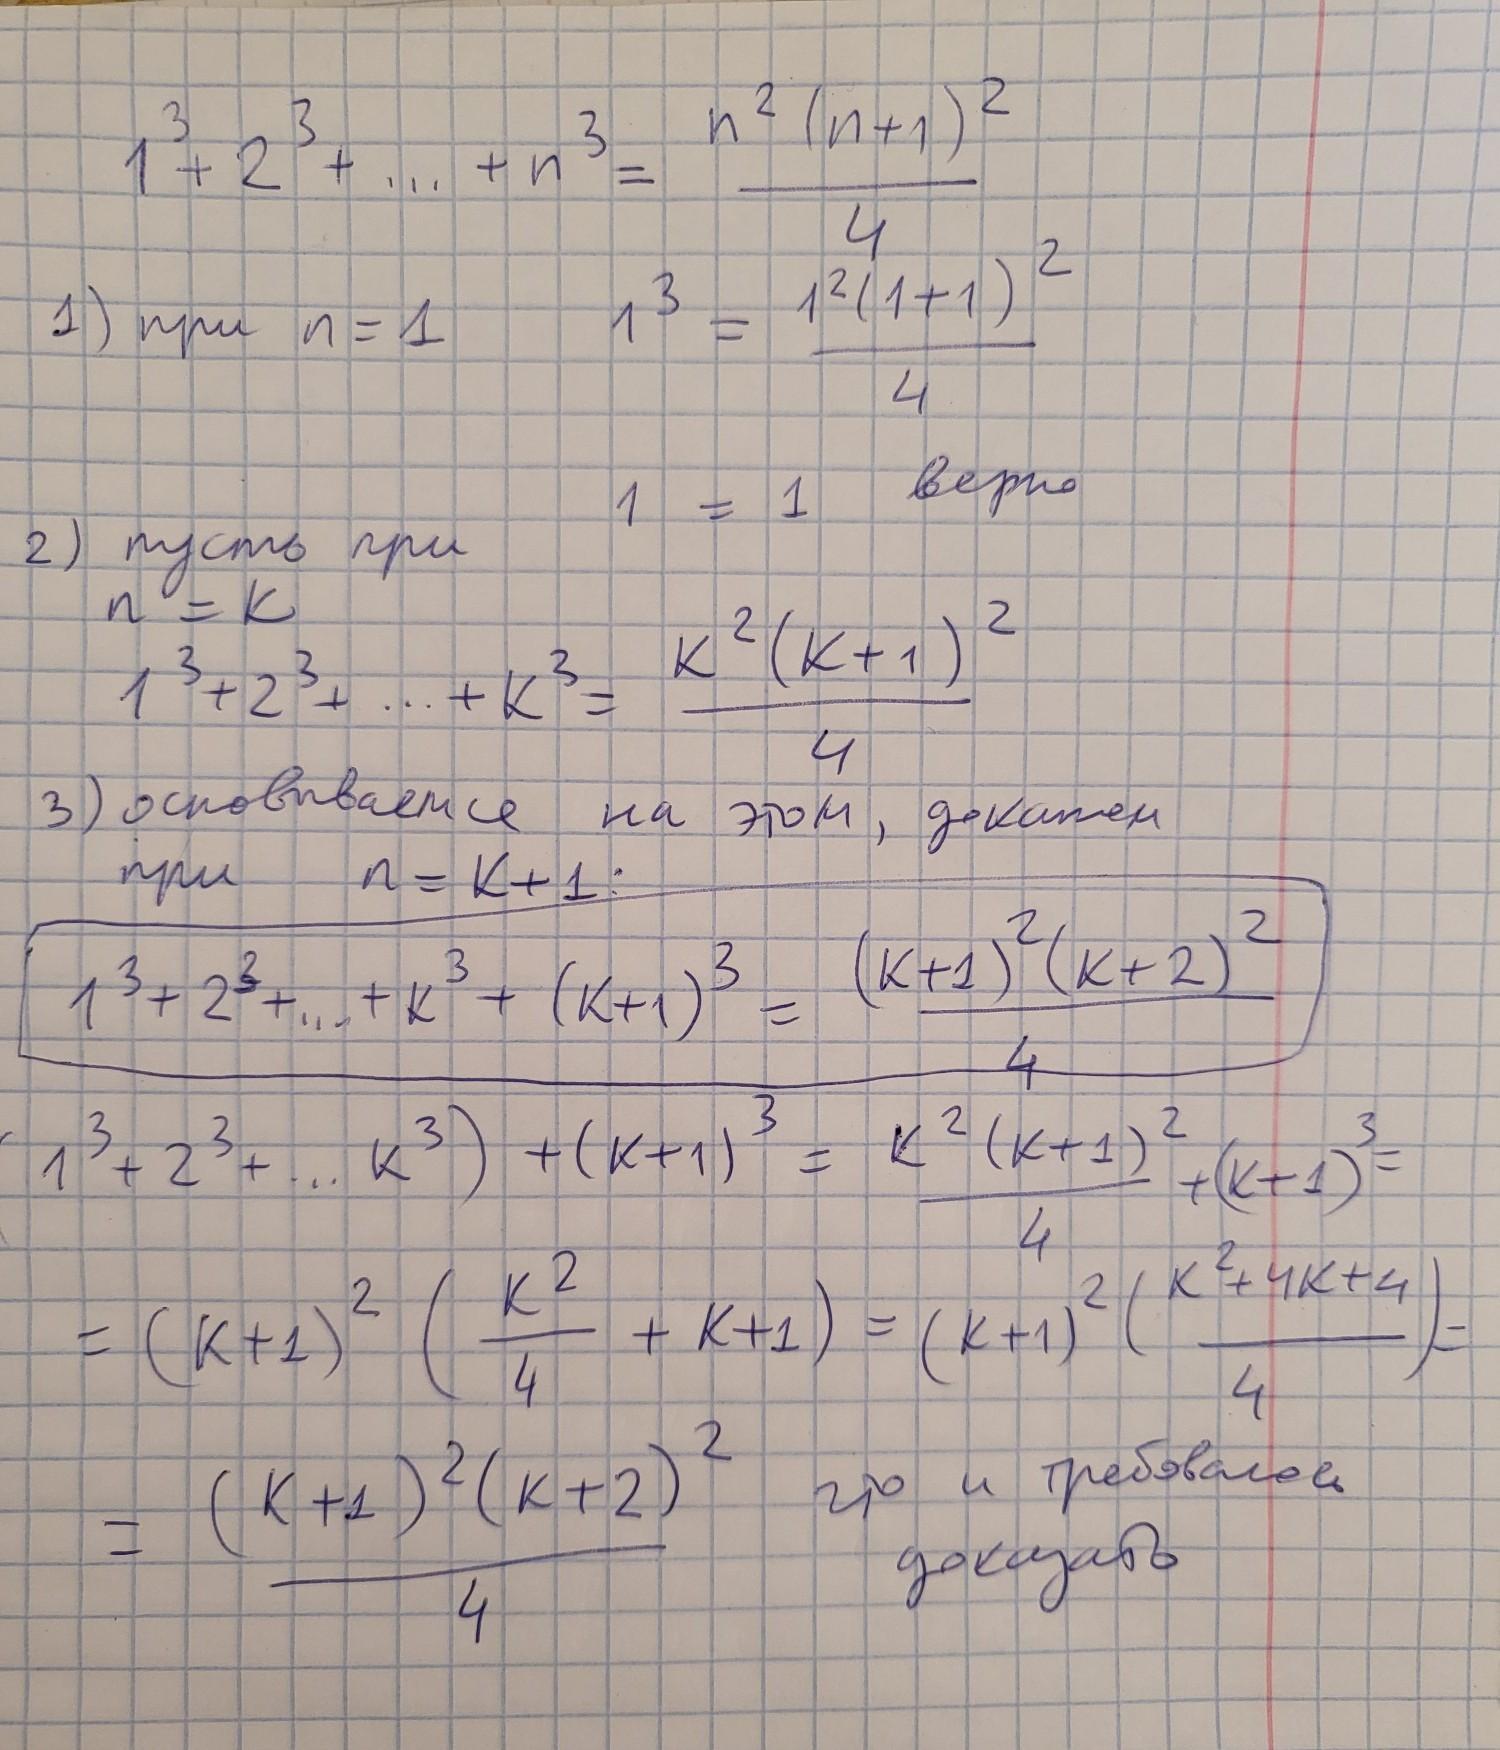 1³ + 2³ + ... + n³ = n² (n+1)² / 4
1) при n = 1    1³ = 1² (1+1)² / 4
1 = 1 верно
2) пусть при
n = k
1³ + 2³ + ... + k³ = k² (k+1)² / 4
3) основываемся на этом, докажем
при n = k+1:
1³ + 2³ + ... + k³ + (k+1)³ = (k+1)² (k+2)² / 4
(1³ + 2³ + ... k³) + (k+1)³ = k² (k+1)² / 4 + (k+1)³ =
= (k+1)² (k² / 4 + k+1) = (k+1)² (k²+4k+4 / 4) =
= (k+1)² (k+2)² / 4 что и требовалось
доказать